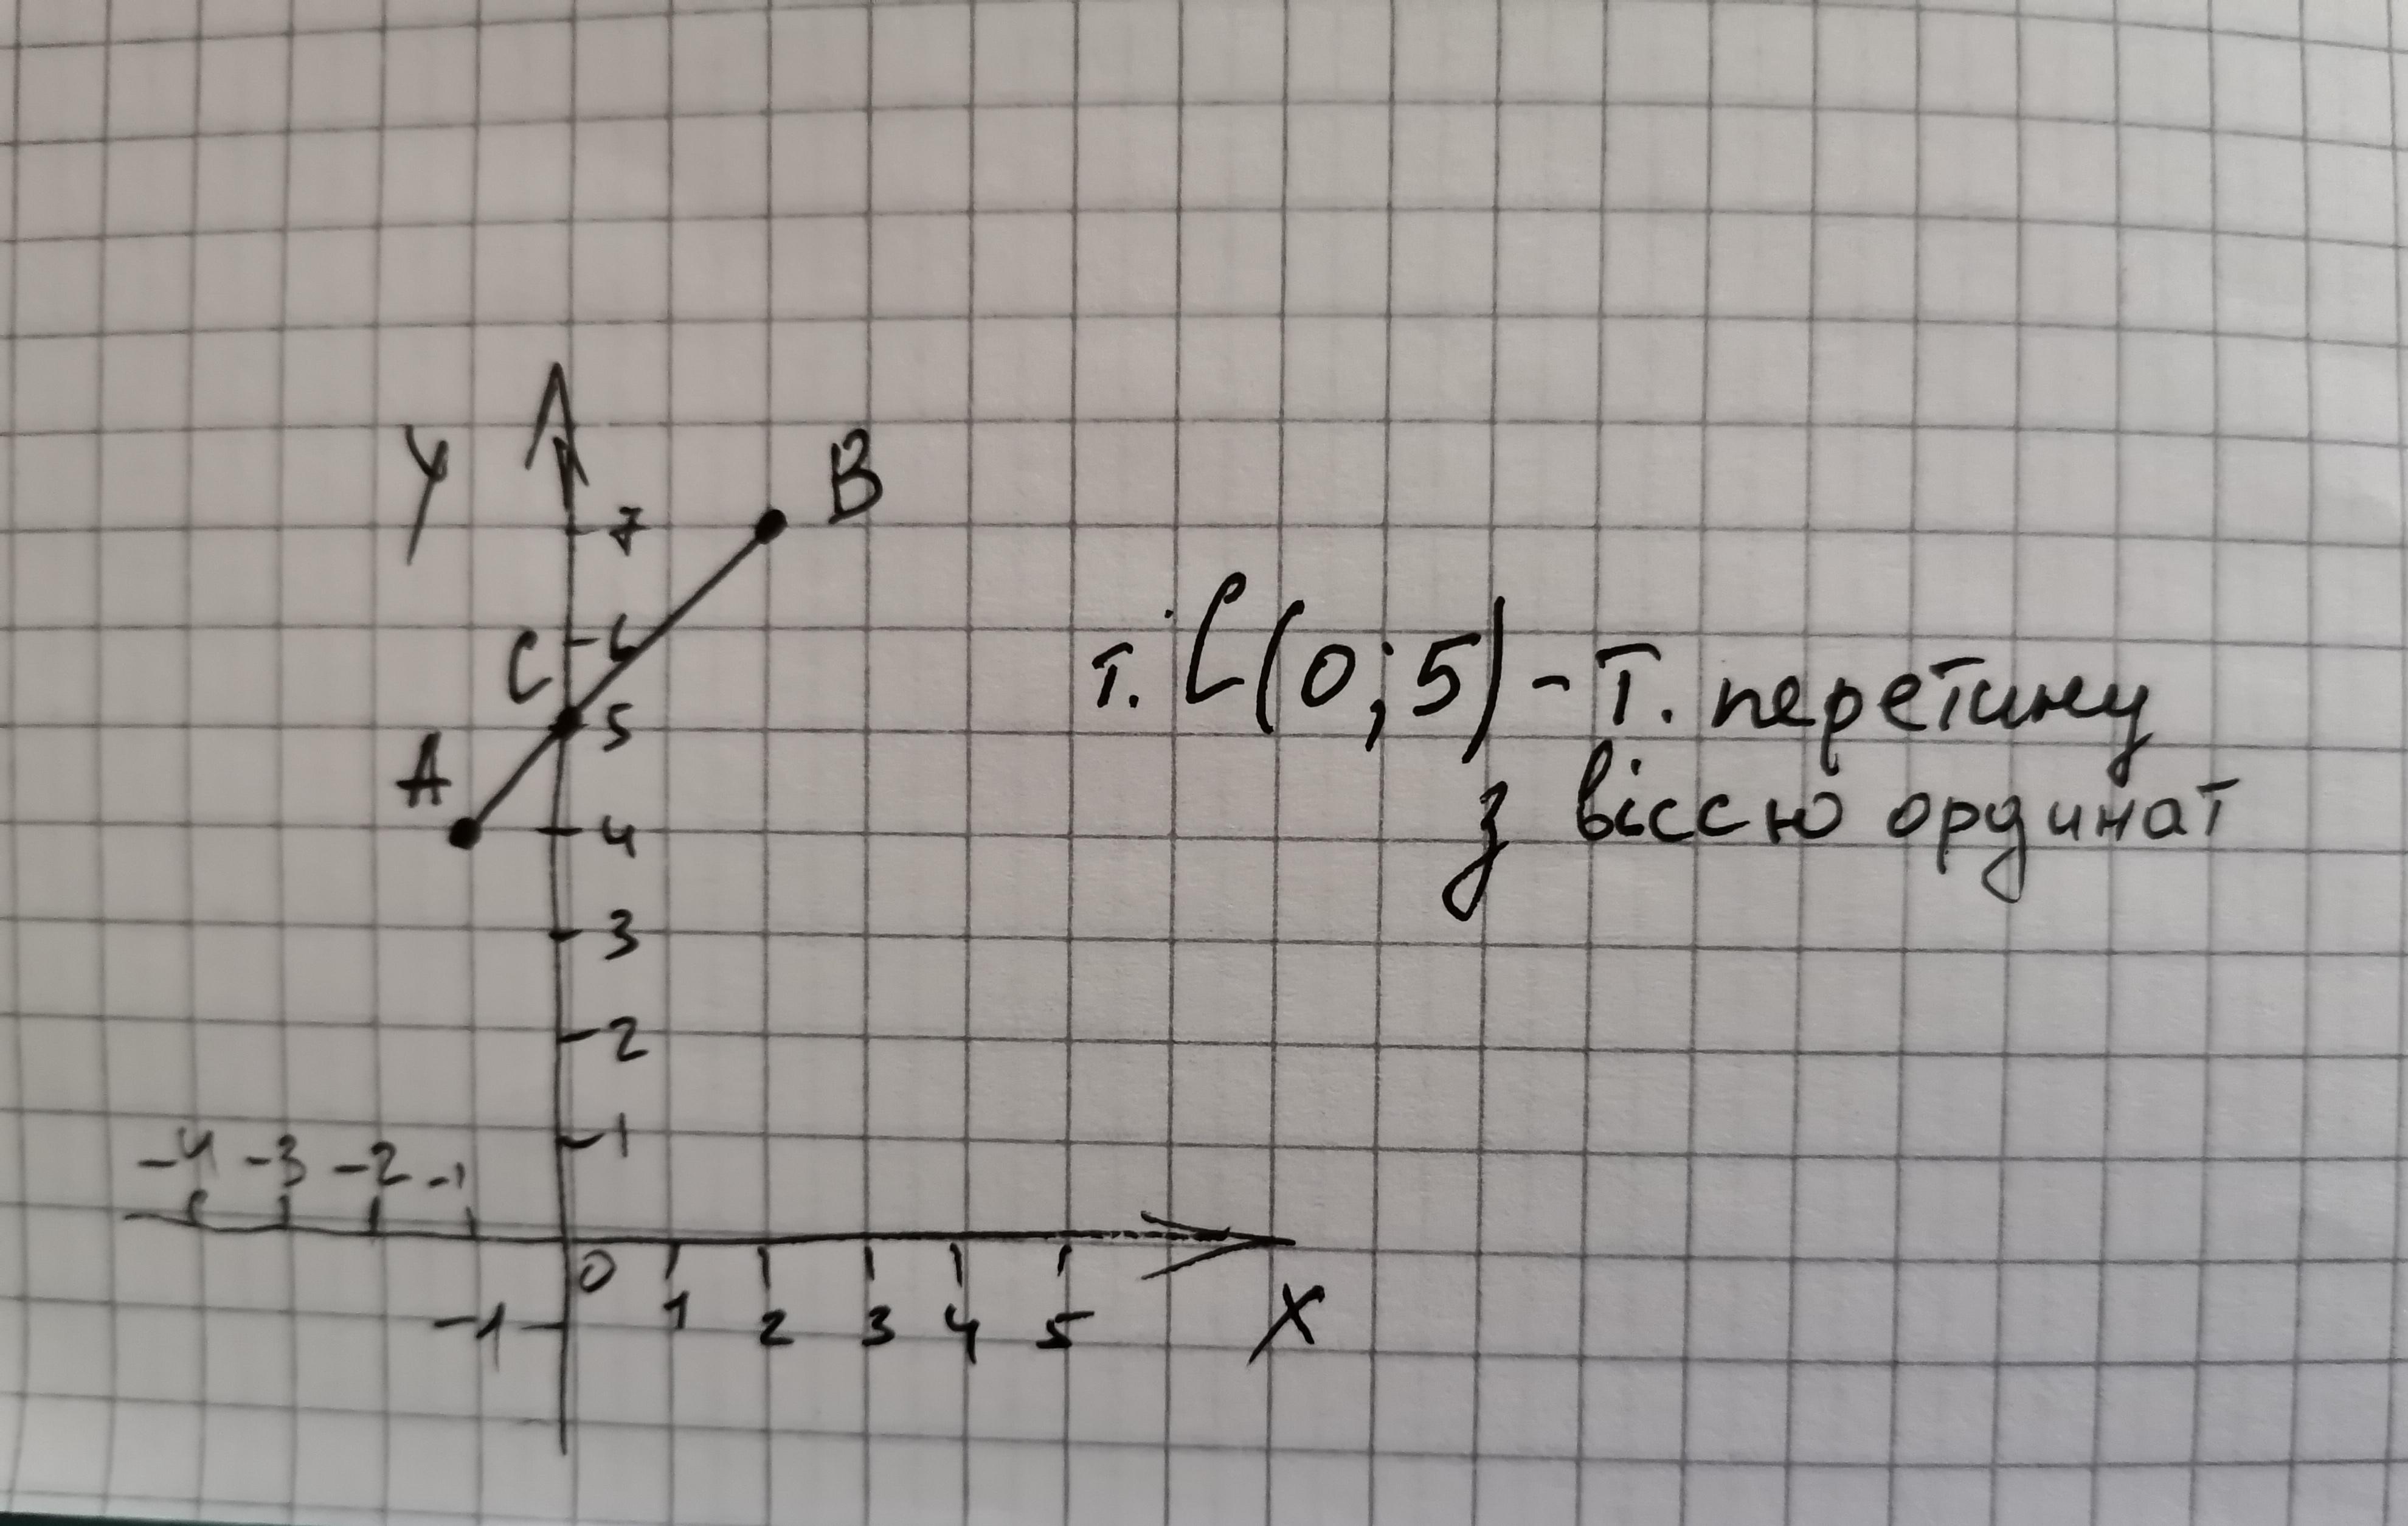 У
В
7
С
6
т. С(0; 5) - т. перетину
5
А
з віссю ординат
4
3
2
1
-4 -3 -2 -1
0
-1 1 2 3 4 5 Х